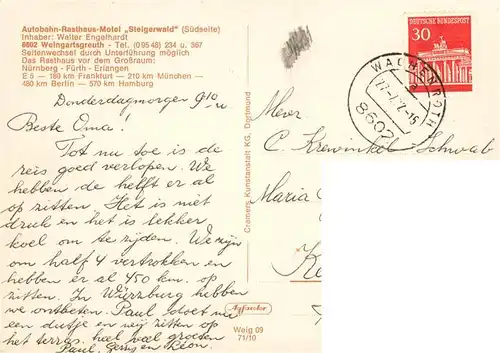 Autobahn-Rasthaus-Motel „Steigerwald" (Südseite)
Inhaber: Walter Engelhardt
8602 Weingartsgreuth - Tel. (09548) 234 u. 367
Seitenwechsel durch Unterführung möglich
Das Rasthaus vor dem Großraum:
Nürnberg - Fürth - Erlangen
E 5 — 180 km Frankfurt — 210 km München —
480 km Berlin — 570 km Hamburg
Donderdagmorgen 9 10 u
Beste Oma!
Tot nu toe is de
reis goed verlopen. We
hebben de helft er al
op zitten. Het is niet
druk en het is lekker
koel om te rijden. We zijn
om half 4 vertrokken en
hebben er al 450 km. op
zitten. In Würzburg hebben
we ontbeten. Paul doet nu
een dutje en wij zitten op
het terras. heel veel groeten
Paul, Gerry en Léon.
Cramers Kunstanstalt KG, Dortmund
Agfacolor
Weig 09
71/10
DEUTSCHE BUNDESPOST
30
WACHENROTH
8602
Mevr.
C. Krewinkel-Schwab
Maria